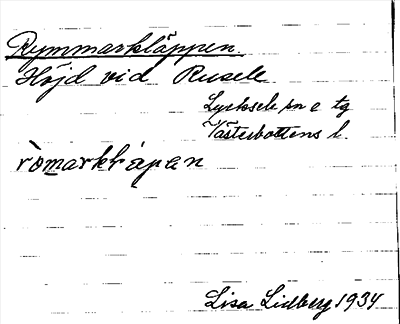 Rymmarkläppen.
Höjd vid Rusele
Lycksele sn o tg
Västerbottens l.
ròmarkḷápan
Lisa Lidberg 1934